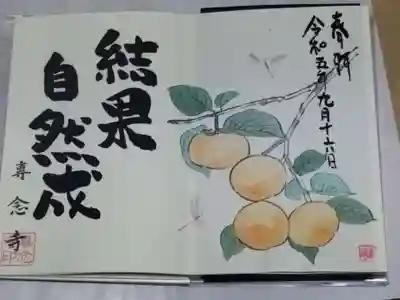 奉拝
令和五年九月十六日
結果
自然成
専念寺